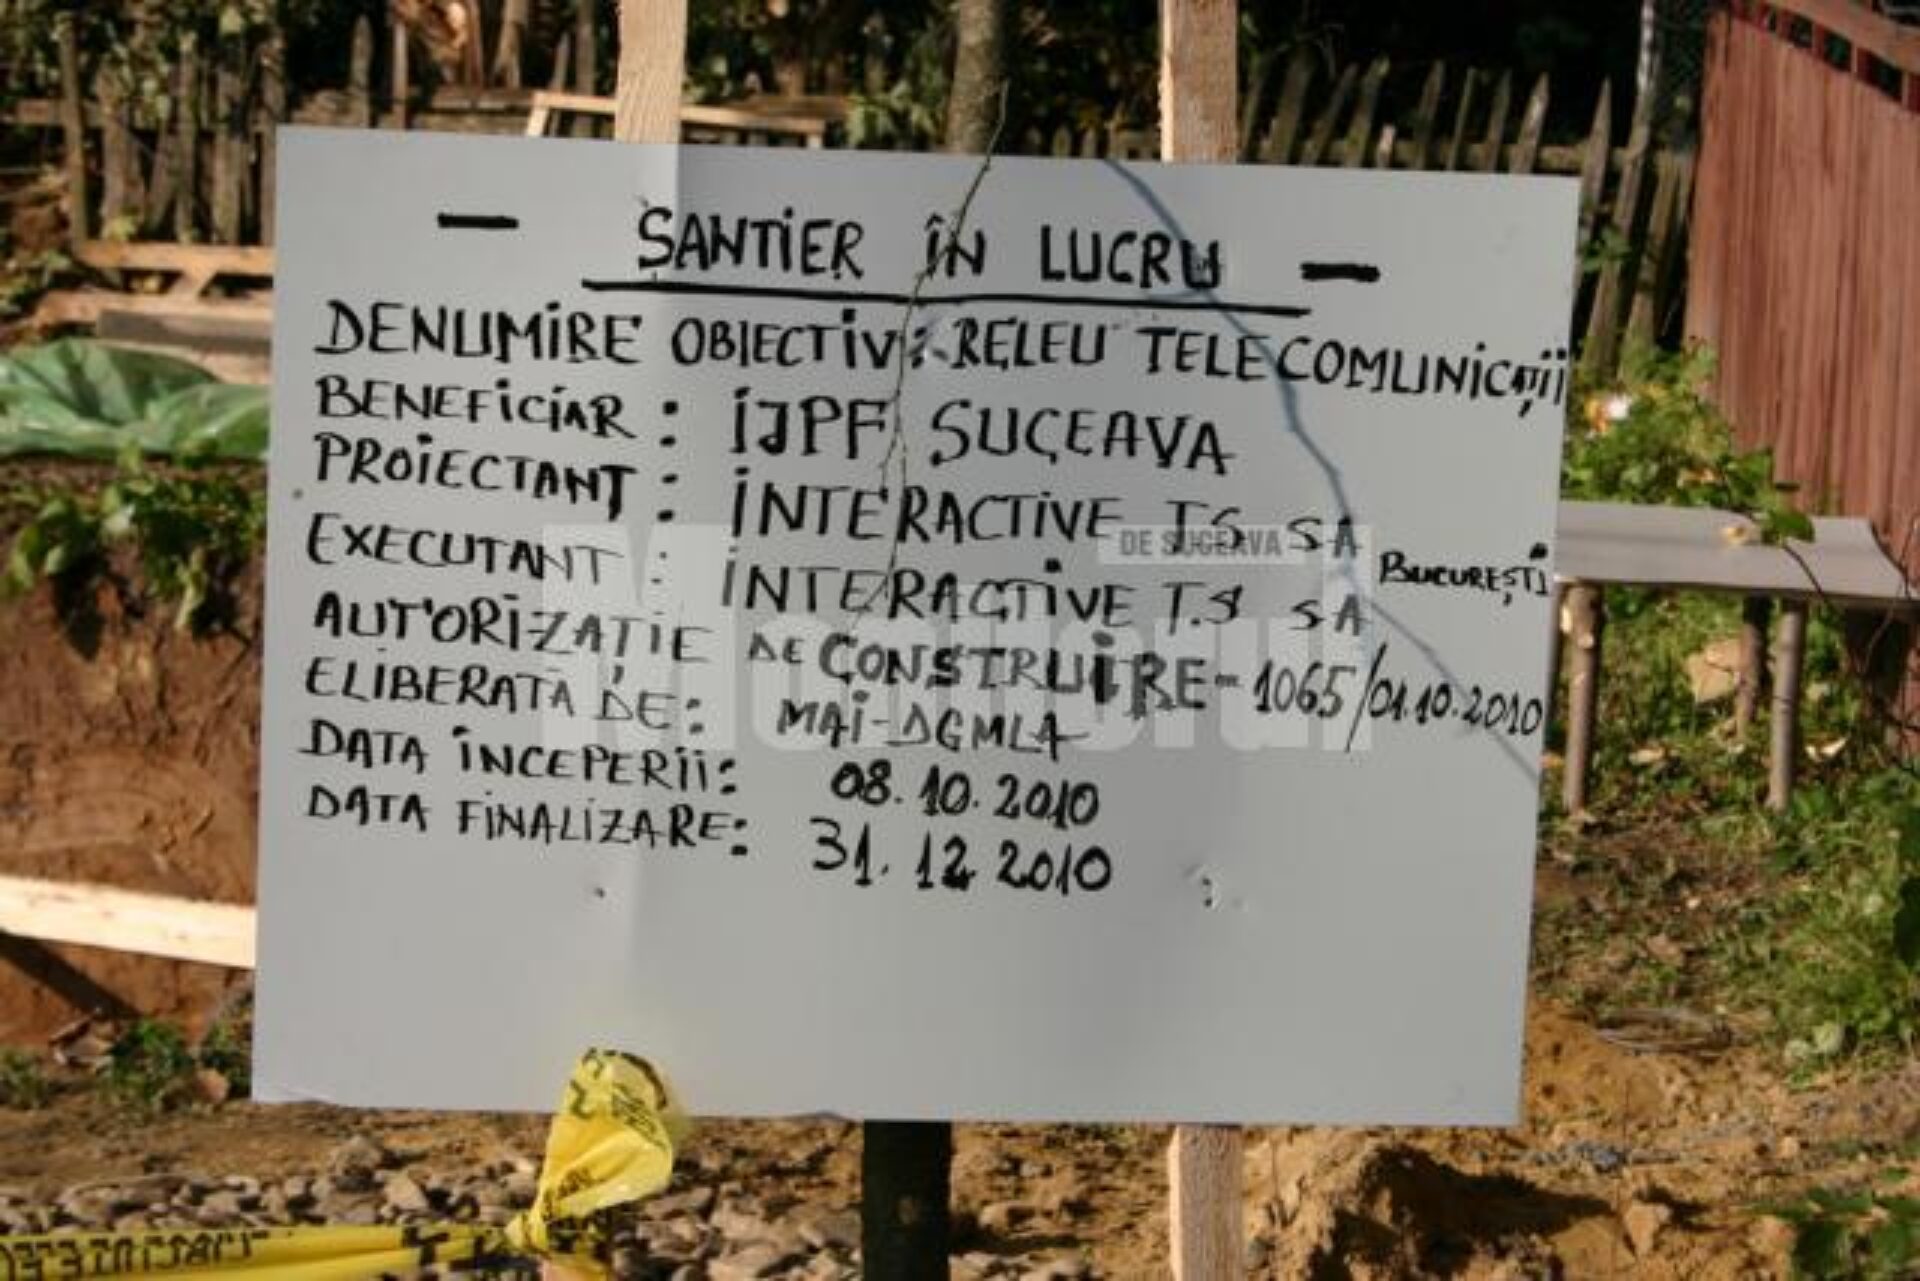 — ȘANTIER ÎN LUCRU —
DENUMIRE OBIECTIV: RELEU TELECOMUNICAȚII
BENEFICIAR: IJPF SUCEAVA
PROIECTANT: INTERACTIVE T.S SA
EXECUTANT: INTERACTIVE T.S SA BUCUREȘTI
AUTORIZAȚIE DE CONSTRUIRE-1065/01.10.2010
ELIBERATĂ DE: MAI-DGMLA
DATA ÎNCEPERII: 08.10.2010
DATA FINALIZARE: 31.12.2010
Monitorul
DE SUCEAVA